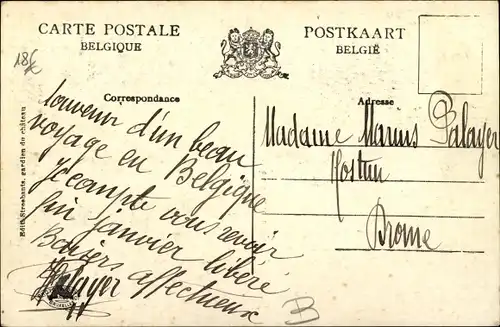 CARTE POSTALE
BELGIQUE
POSTKAART
BELGIË
186
Correspondance
Adresse
Souvenir d'un beau
voyage en Belgique
Je compte vous revoir
fin janvier libéré
Baisers affectueux
Palayer
Madame Marius Palayer
Hostun
Drome
Edit. gardien du château
B